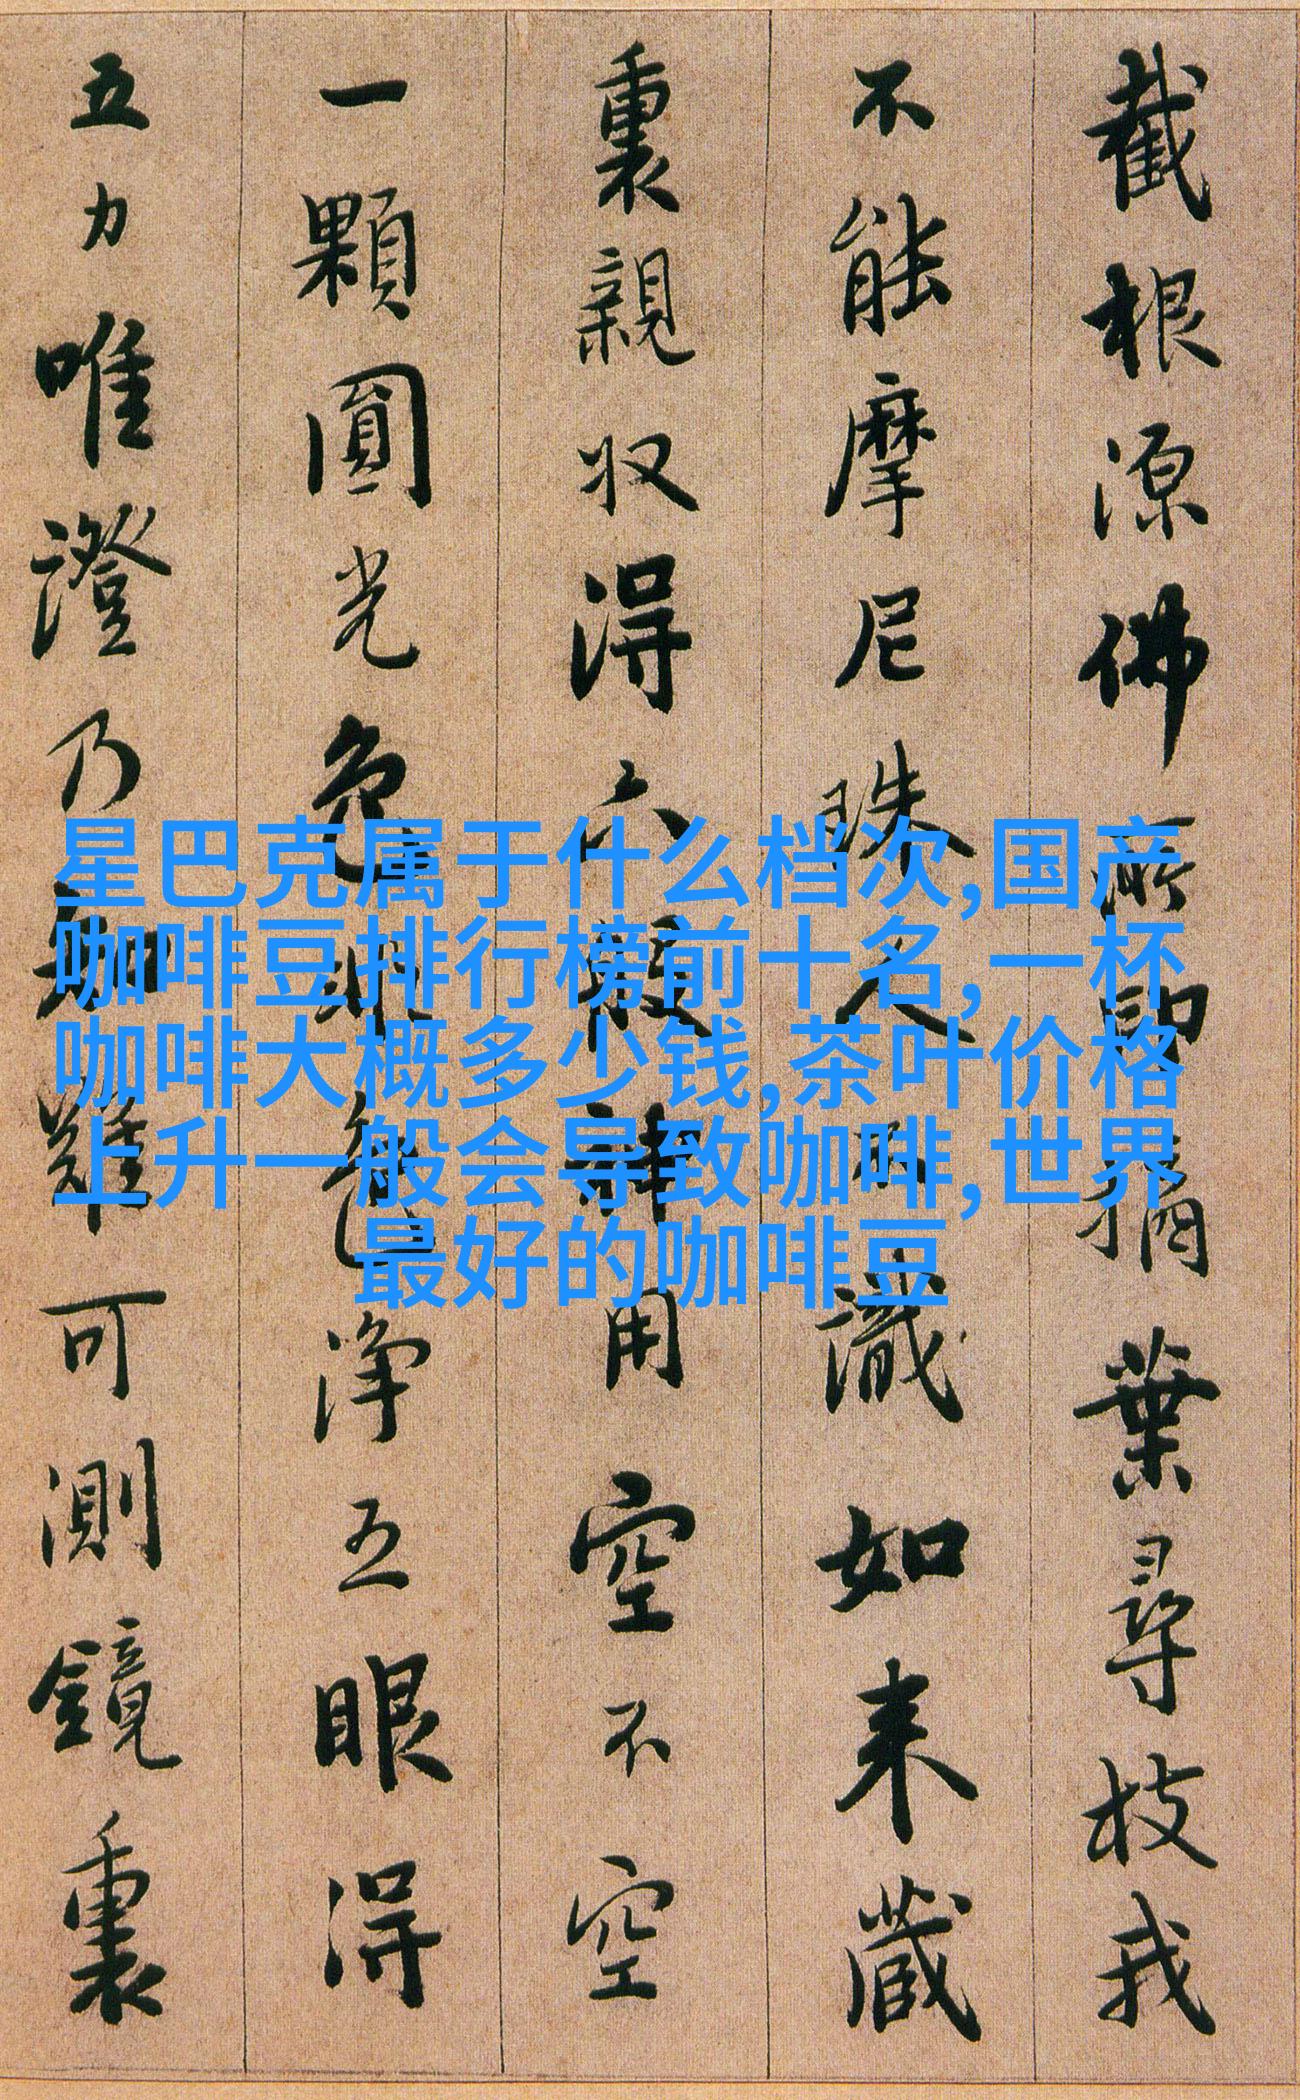 截根源佛所印摘葉尋枝我
不能摩尼珠人不識如来藏
裏親収得六般神用空不空
一顆圓光色非色淨五眼得
五力唯證乃知難可測鏡裏
星巴克属于什么档次,国产
咖啡豆排行榜前十名,一杯
咖啡大概多少钱,茶叶价格
上升一般会导致咖啡,世界
最好的咖啡豆